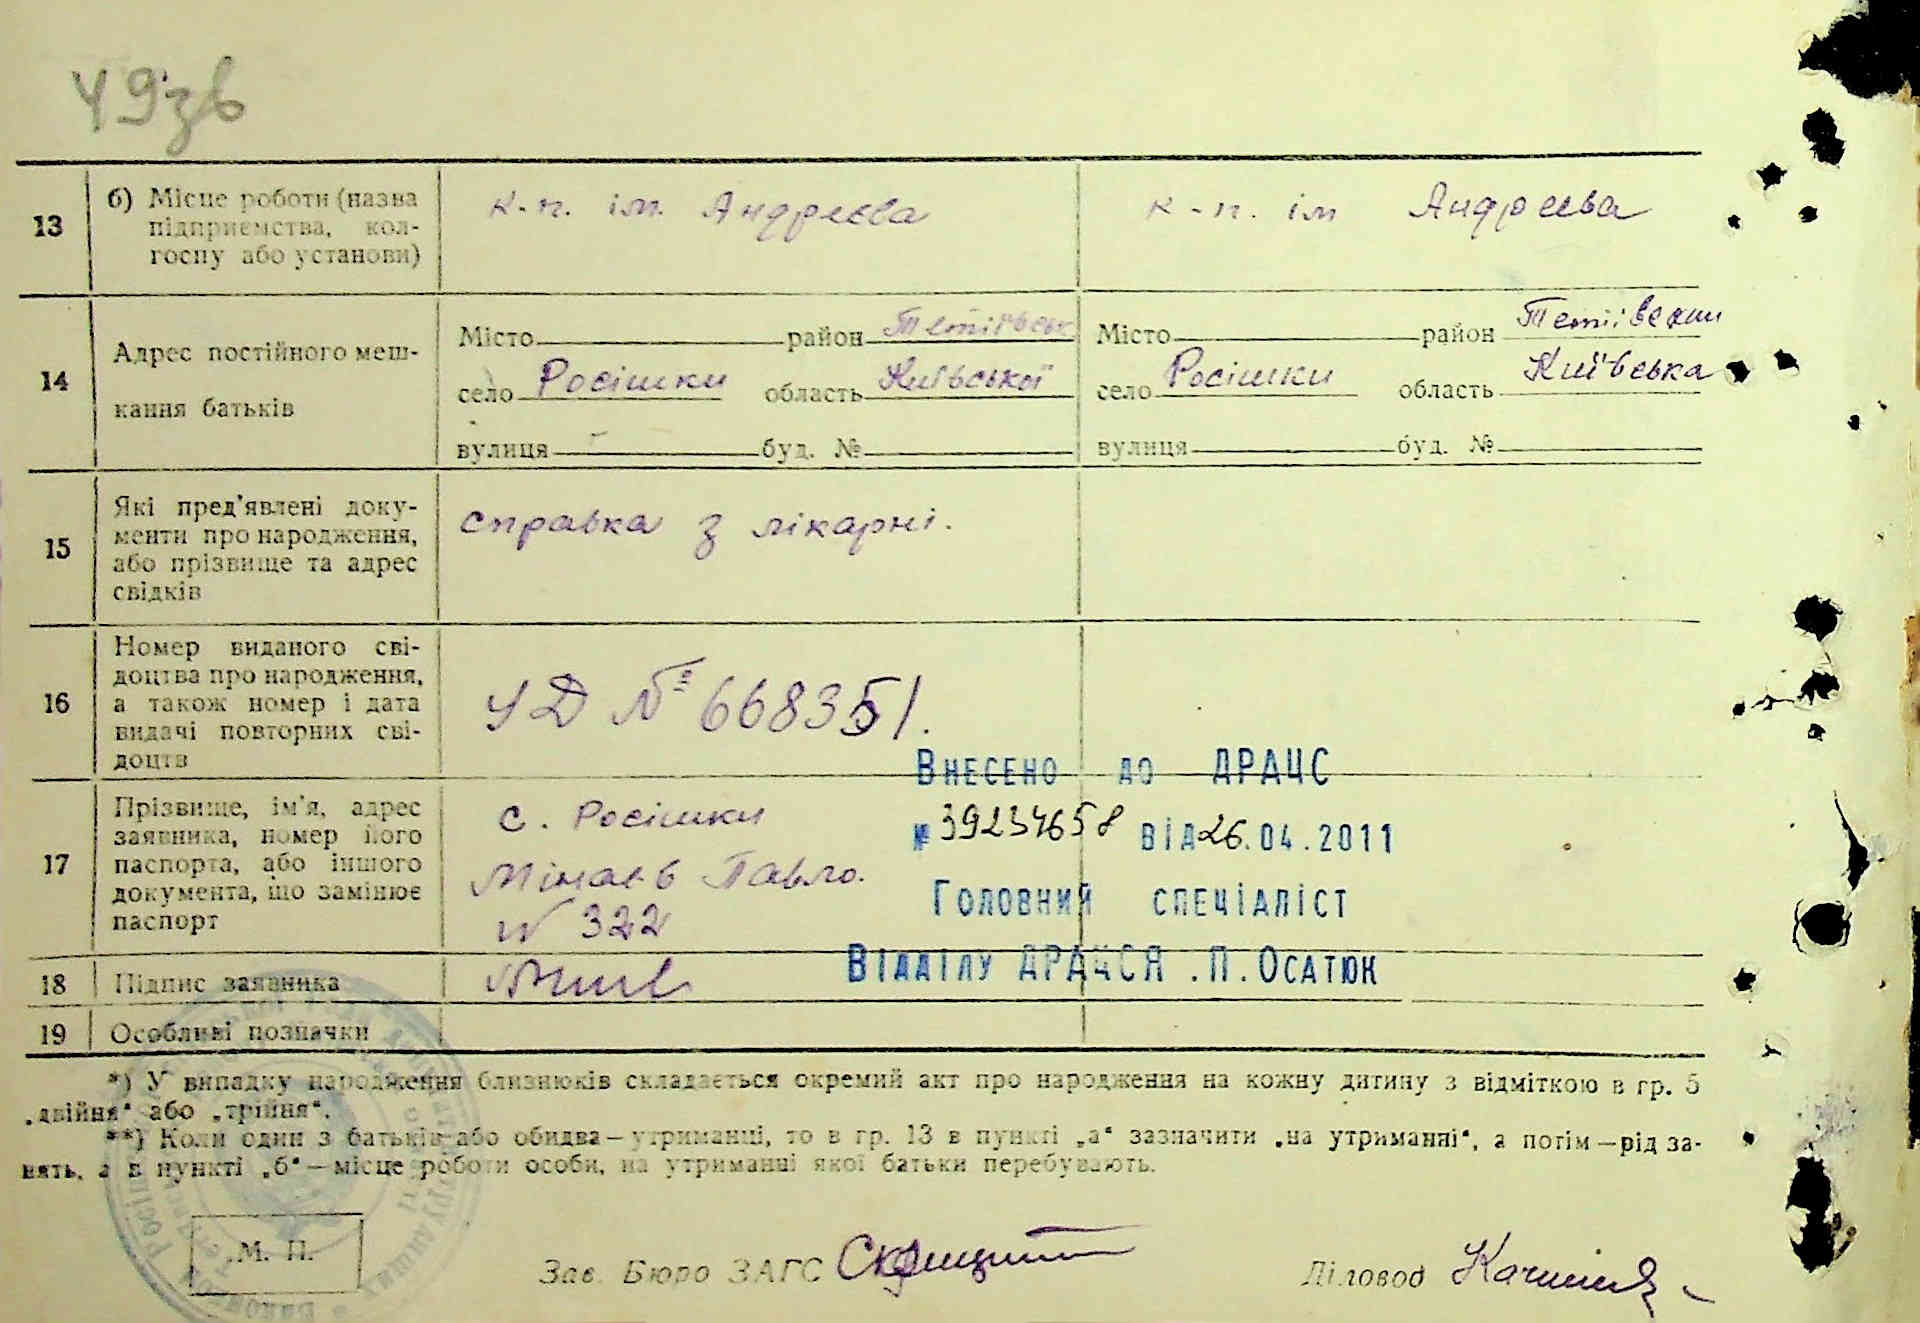 49зв
13 б) Місце роботи (назва підприємства, колгоспу або установи) к-п. ім. Андреєва к-п. ім Андреєва
14 Адрес постійного мешкання батьків
Місто район Тетіївськ Місто район
село Росішки область Київської село Росішки область Київська
вулиця буд. № вулиця буд. №
15 Які пред'явлені документи про народження, або прізвище та адрес свідків справка з лікарні.
16 Номер виданого свідоцтва про народження, а також номер і дата видачі повторних свідоцтв УД № 668351.
Внесено до ДРАЦС
№ 39234658 від 26.04.2011
Головний спеціаліст
Відділу ДРАЦСЯ.П.Осатюк
17 Прізвище, ім'я, адрес заявника, номер його паспорта, або іншого документа, що замінює паспорт
с. Росішки
Мінаєв Павло.
N 322
18 Підпис заявника
19 Особливі позначки
*) У випадку народження близнюків складається окремий акт про народження на кожну дитину з відміткою в гр. 5
„двійня“ або „трійня“.
**) Коли один з батьків або обидва — утриманці, то в гр. 13 в пункті „а“ зазначити „на утриманні“, а потім — рід за-
нять, а в пункті „б“ — місце роботи особи, на утриманні якої батьки перебувають.
М. П.
Зав. Бюро ЗАГС
Діловод